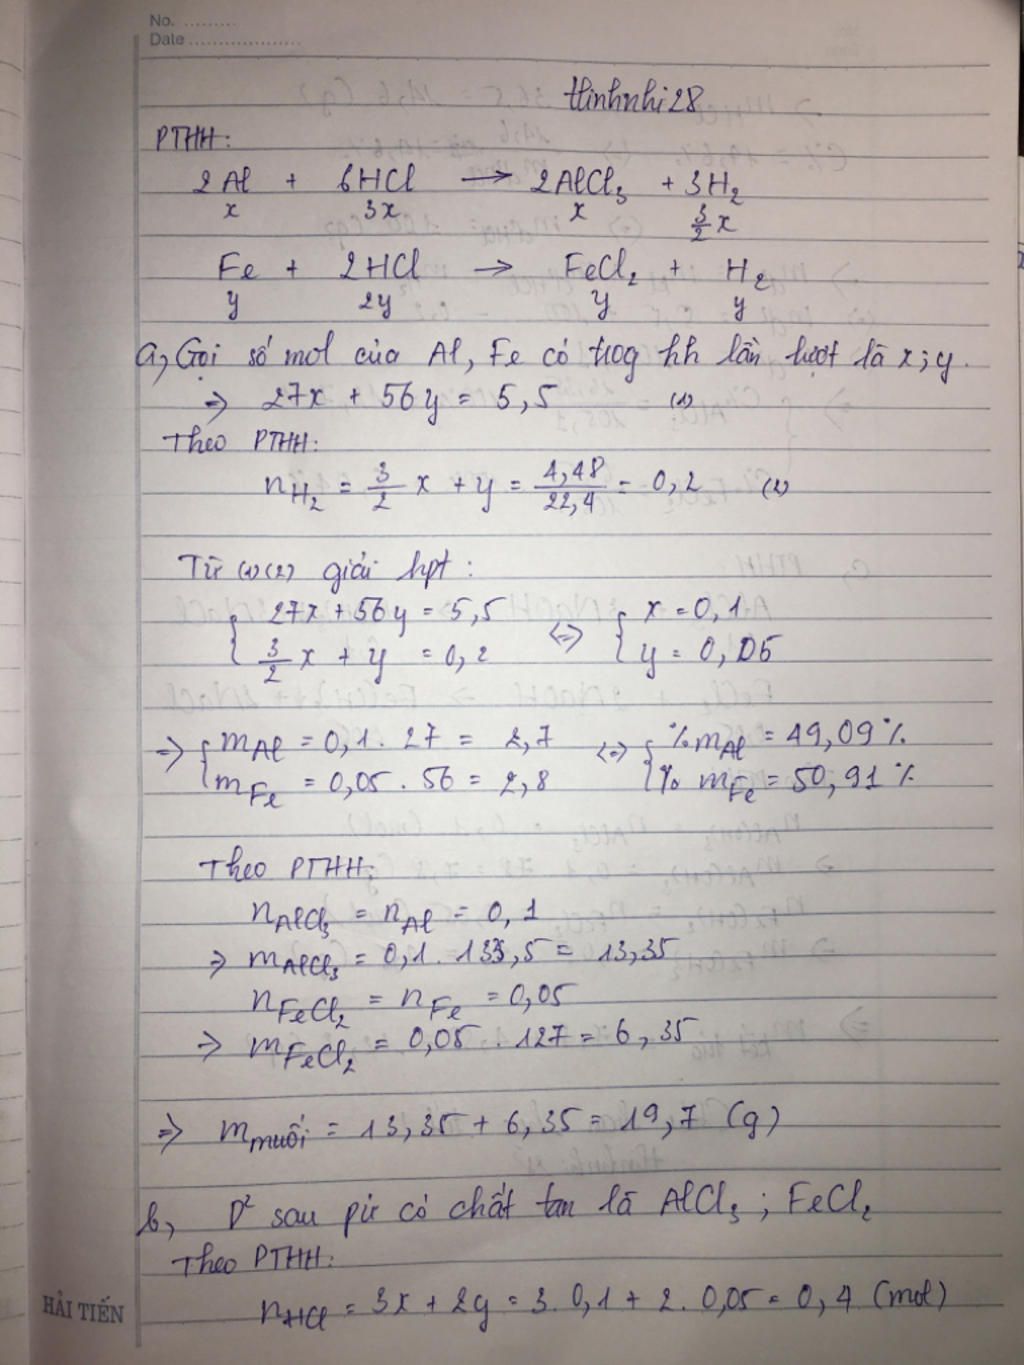 No. .........
Date ...................
thinhnhi28
PTHH:
2Al + 6HCl → 2AlCl₃ + 3H₂
x 3x x 3/2 x
Fe + 2HCl → FeCl₂ + H₂
y 2y y y
a, Gọi số mol của Al, Fe có trog hh lần lượt là x; y.
⇒ 27x + 56y = 5,5 (1)
Theo PTHH:
n_H₂ = 3/2 x + y = 4,48/22,4 = 0,2 (2)
Từ (1)(2) giải hpt:
{ 27x + 56y = 5,5 ⇔ { x = 0,1
{ 3/2 x + y = 0,2 { y = 0,05
⇒ { m_Al = 0,1 . 27 = 2,7 ⇔ { %m_Al = 49,09%
{ m_Fe = 0,05 . 56 = 2,8 { % m_Fe = 50,91%
Theo PTHH:
n_AlCl₃ = n_Al = 0,1
⇒ m_AlCl₃ = 0,1 . 133,5 = 13,35
n_FeCl₂ = n_Fe = 0,05
⇒ m_FeCl₂ = 0,05 . 127 = 6,35
⇒ m_muối = 13,35 + 6,35 = 19,7 (g)
b, D² sau pư có chất tan là AlCl₃; FeCl₂
Theo PTHH:
n_HCl = 3x + 2y = 3. 0,1 + 2. 0,05 = 0,4 (mol)
HẢI TIẾN